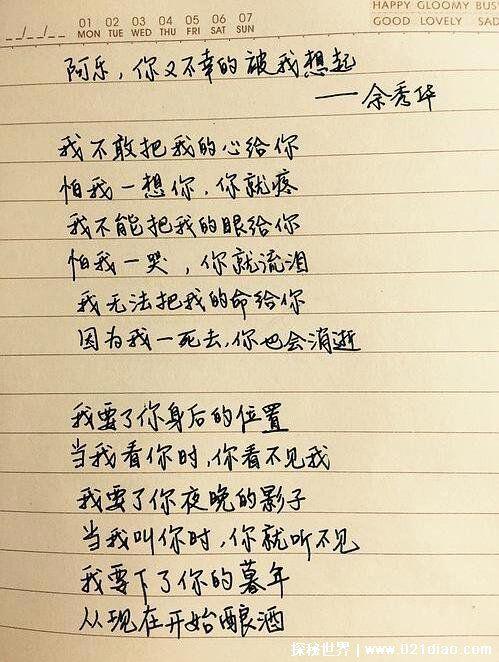 01 02 03 04 05 06 07
MON TUE WED THU FRI SAT SUN
HAPPY GLOOMY BUS
GOOD LOVELY SAD
__/__/__
阿乐，你又不幸的被我想起
——余秀华
我不敢把我的心给你
怕我一想你，你就疼
我不能把我的眼给你
怕我一哭，你就流泪
我无法把我的命给你
因为我一死去，你也会消逝
我要了你身后的位置
当我看你时，你看不见我
我要了你夜晚的影子
当我叫你时，你就听不见
我要下了你的暮年
从现在开始酿酒
探秘世界｜www.021diao.com